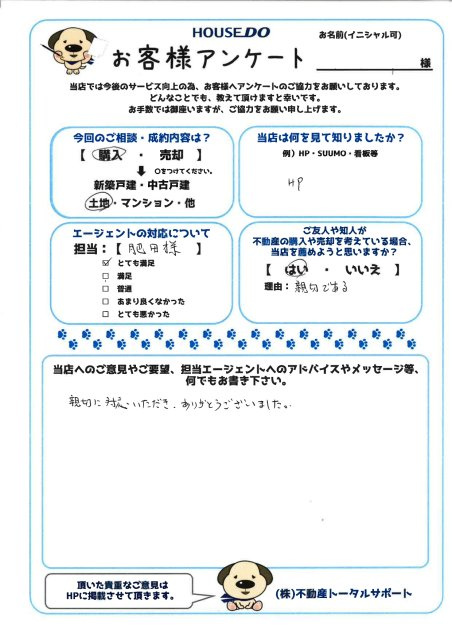 HOUSEDO
お名前(イニシャル可)
お客様アンケート
様
当店では今後のサービス向上の為、お客様へアンケートのご協力をお願いしております。
どんなことでも、教えて頂けますと幸いです。
お手数では御座いますが、ご協力をお願い申し上げます。
今回のご相談・成約内容は?
【 購入 ・ 売却 】
○をつけてください。
新築戸建・中古戸建
土地・マンション・他
当店は何を見て知りましたか?
例) HP・SUUMO・看板等
HP
エージェントの対応について
担当:【 肥田様 】
☑ とても満足
□ 満足
□ 普通
□ あまり良くなかった
□ とても悪かった
ご友人や知人が
不動産の購入や売却を考えている場合、
当店を薦めようと思いますか?
【 はい ・ いいえ 】
理由: 親切である
当店へのご意見やご要望、担当エージェントへのアドバイスやメッセージ等、
何でもお書き下さい。
親切に対応いただき、ありがとうございました。
頂いた貴重なご意見は
HPに掲載させて頂きます。
(株)不動産トータルサポート